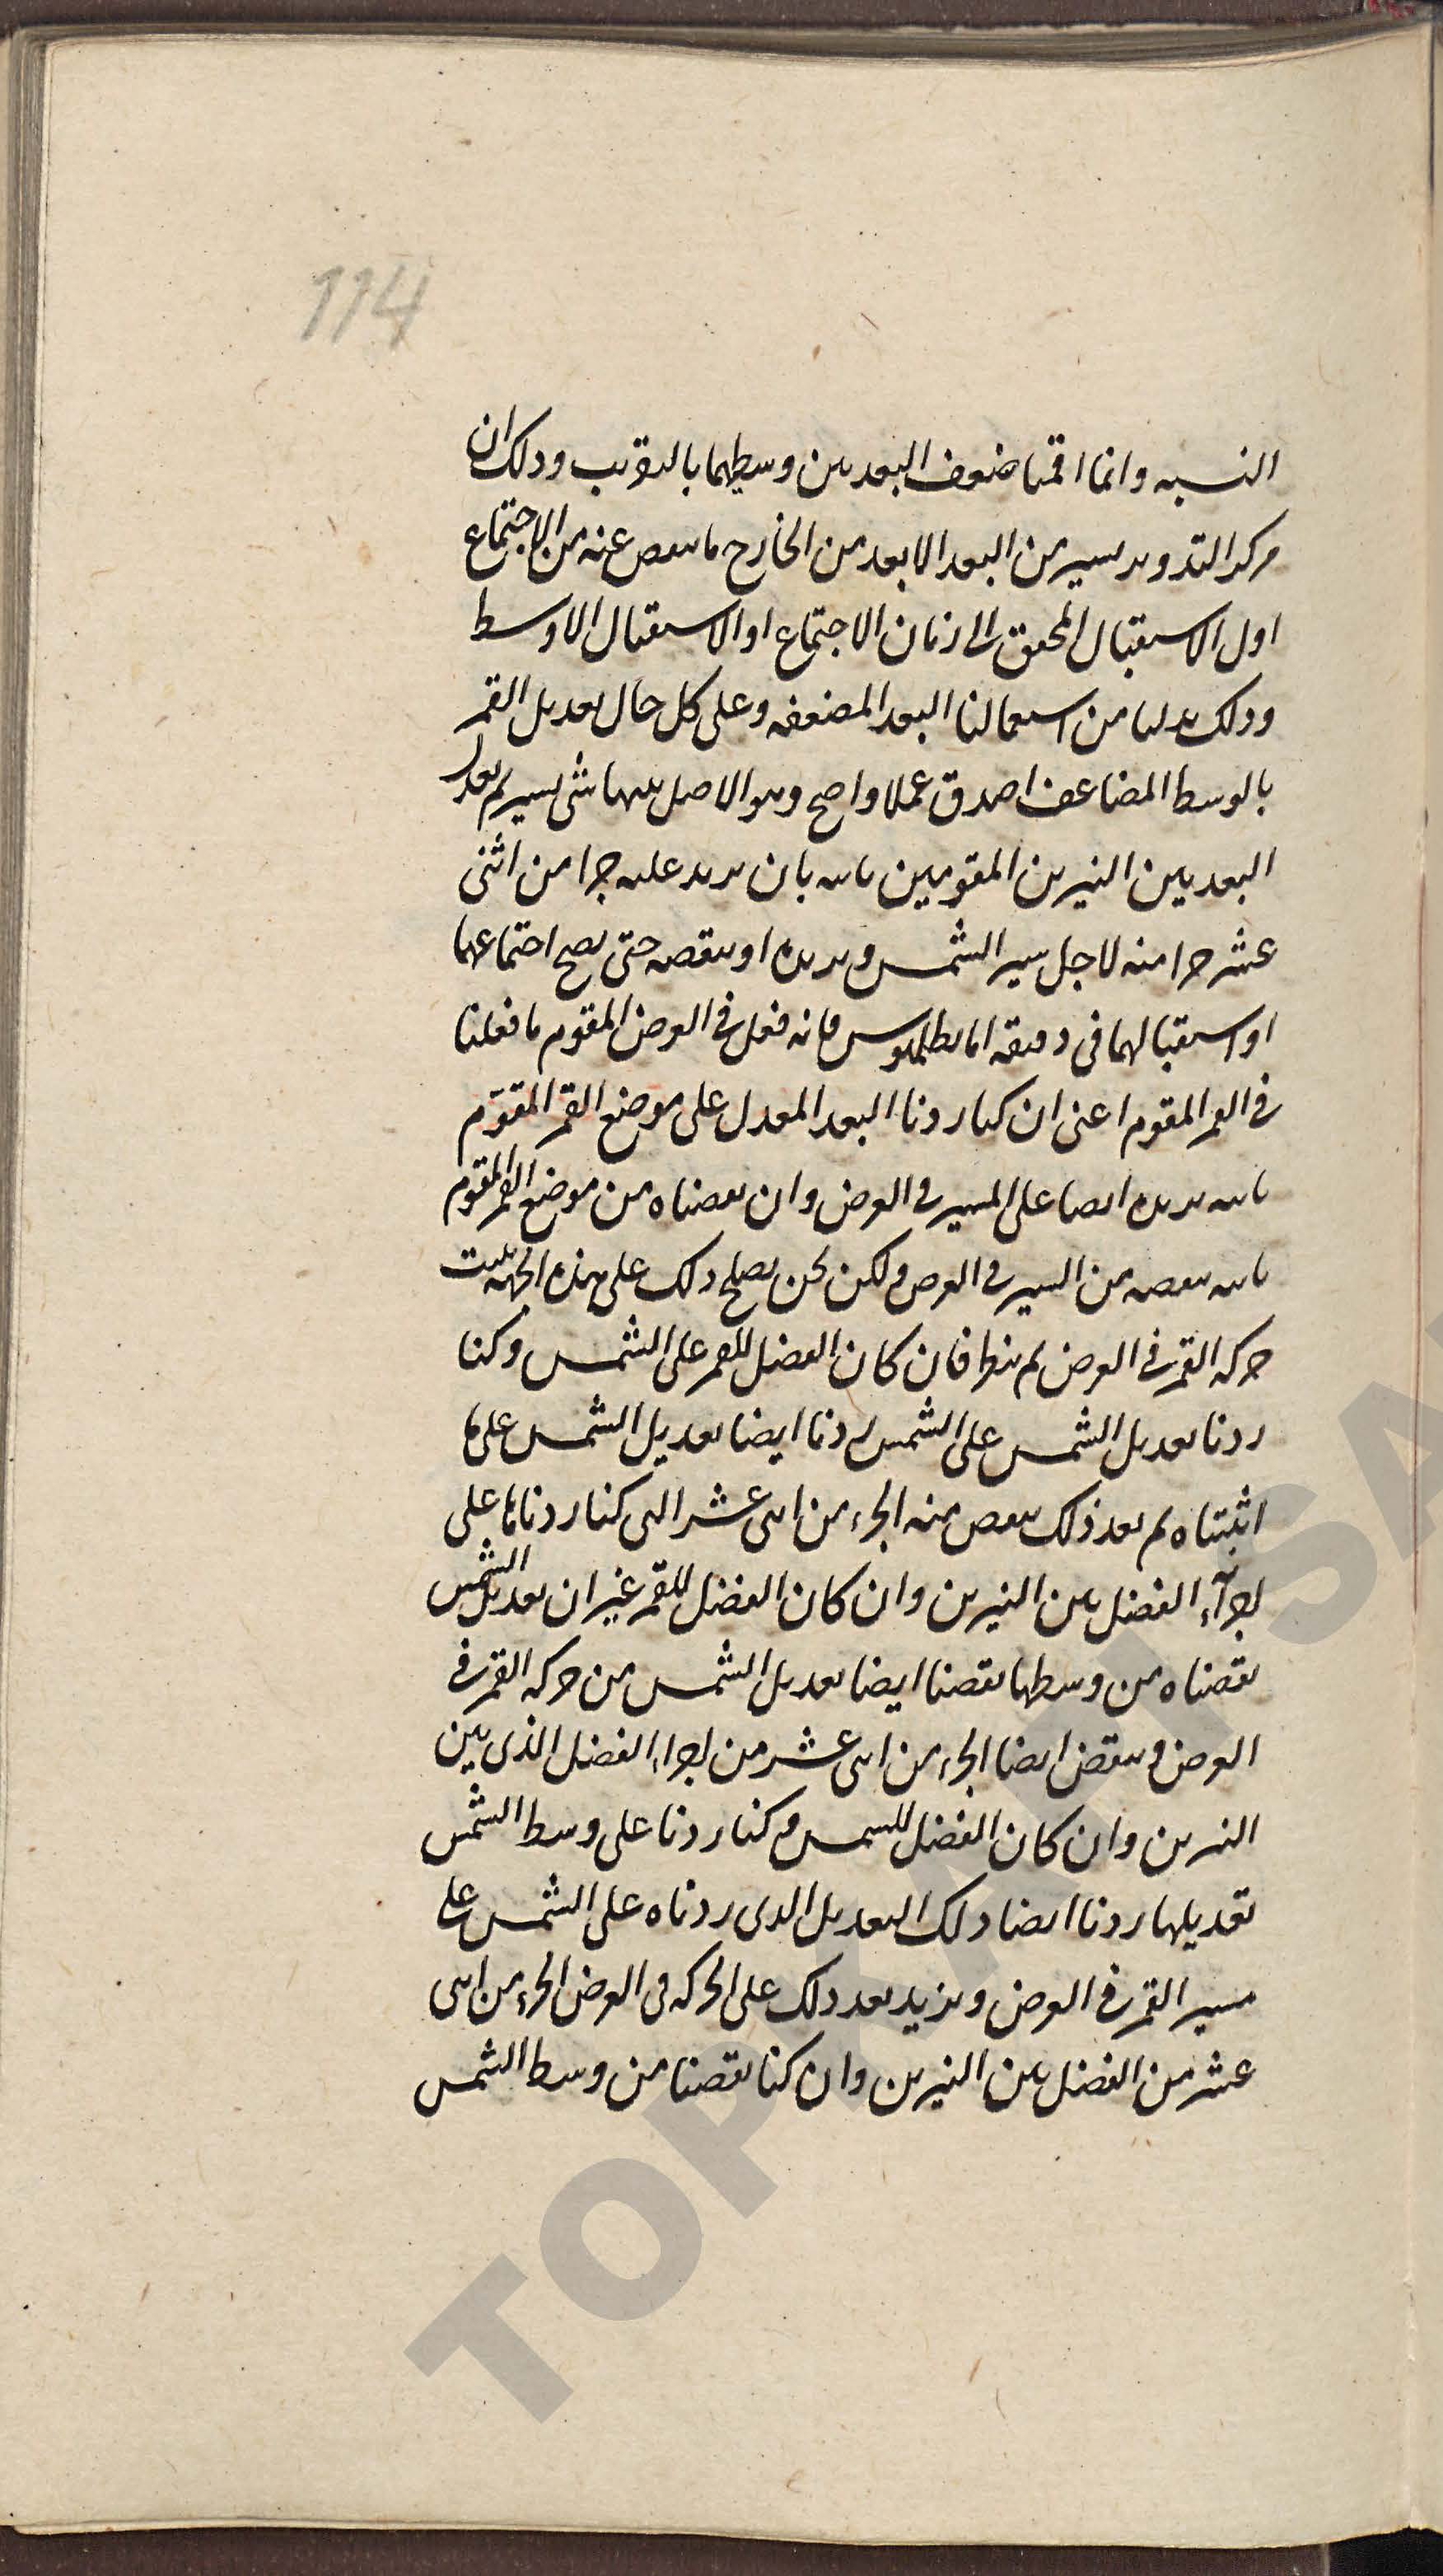 114
النسبه وانما اقمنا ضعف البعد بين وسطيهما بالتقريب وذلك ان
مركز التدوير يسير من البعد الابعد من الخارج ما ينقص عنه من الاجتماع
اول الاستقبال المحقق الى زمان الاجتماع او الاستقبال الاوسط
وذلك من استعمالنا البعد المضعفه وعلى كل حال تعديل القمر
بالوسط المضاعف اصدق عملا واضح وهو الاصل شى يسير ثم تعدل
البعد بين النيرين المقومين بان يزيد عليه جزا من اثنى
عشر جزا منه لاجل سير الشمس ويزيده او ينقصه حتى يصح اجتماعهما
او استقبالهما فى دقيقه اما بطلميوس فانه فعل فى العرض المقوم ما فعلنا
فى القمر المقوم اعنى ان كنا زدنا البعد المعدل على موضع القمر المقوّم
فانه يزيده ايضا على المسير فى العرض وان نقصناه من موضع القمر المقوم
فانه ينقصه من السير فى العرض ولكن نحن نصلح ذلك على هذه الجهه نثبت
حركه القمر فى العرض ثم ننظر فان كان الفضل للقمر على الشمس وكنا
زدنا تعديل الشمس على الشمس زدنا ايضا تعديل الشمس على ما
اثبتناه ثم بعد ذلك ينقص منه الجزء من اثنى عشر التى كنا زدناها على
اجزآء الفضل بين النيرين وان كان الفضل للقمر غير ان تعديل الشمس
نقصناه من وسطها نقصنا ايضا تعديل الشمس من حركه القمر فى
العرض وينقص ايضا الجزء من اثنى عشر من اجزاء الفضل الذى بين
النيرين وان كان الفضل للشمس وكنا زدنا على وسط الشمس
تعديلها زدنا ايضا ذلك التعديل الذى زدناه على الشمس على
مسير القمر فى العرض ونزيد بعد ذلك على الحركه فى العرض الجزء من اثنى
عشر من الفضل بين النيرين وان كنا نقصنا من وسط الشمس